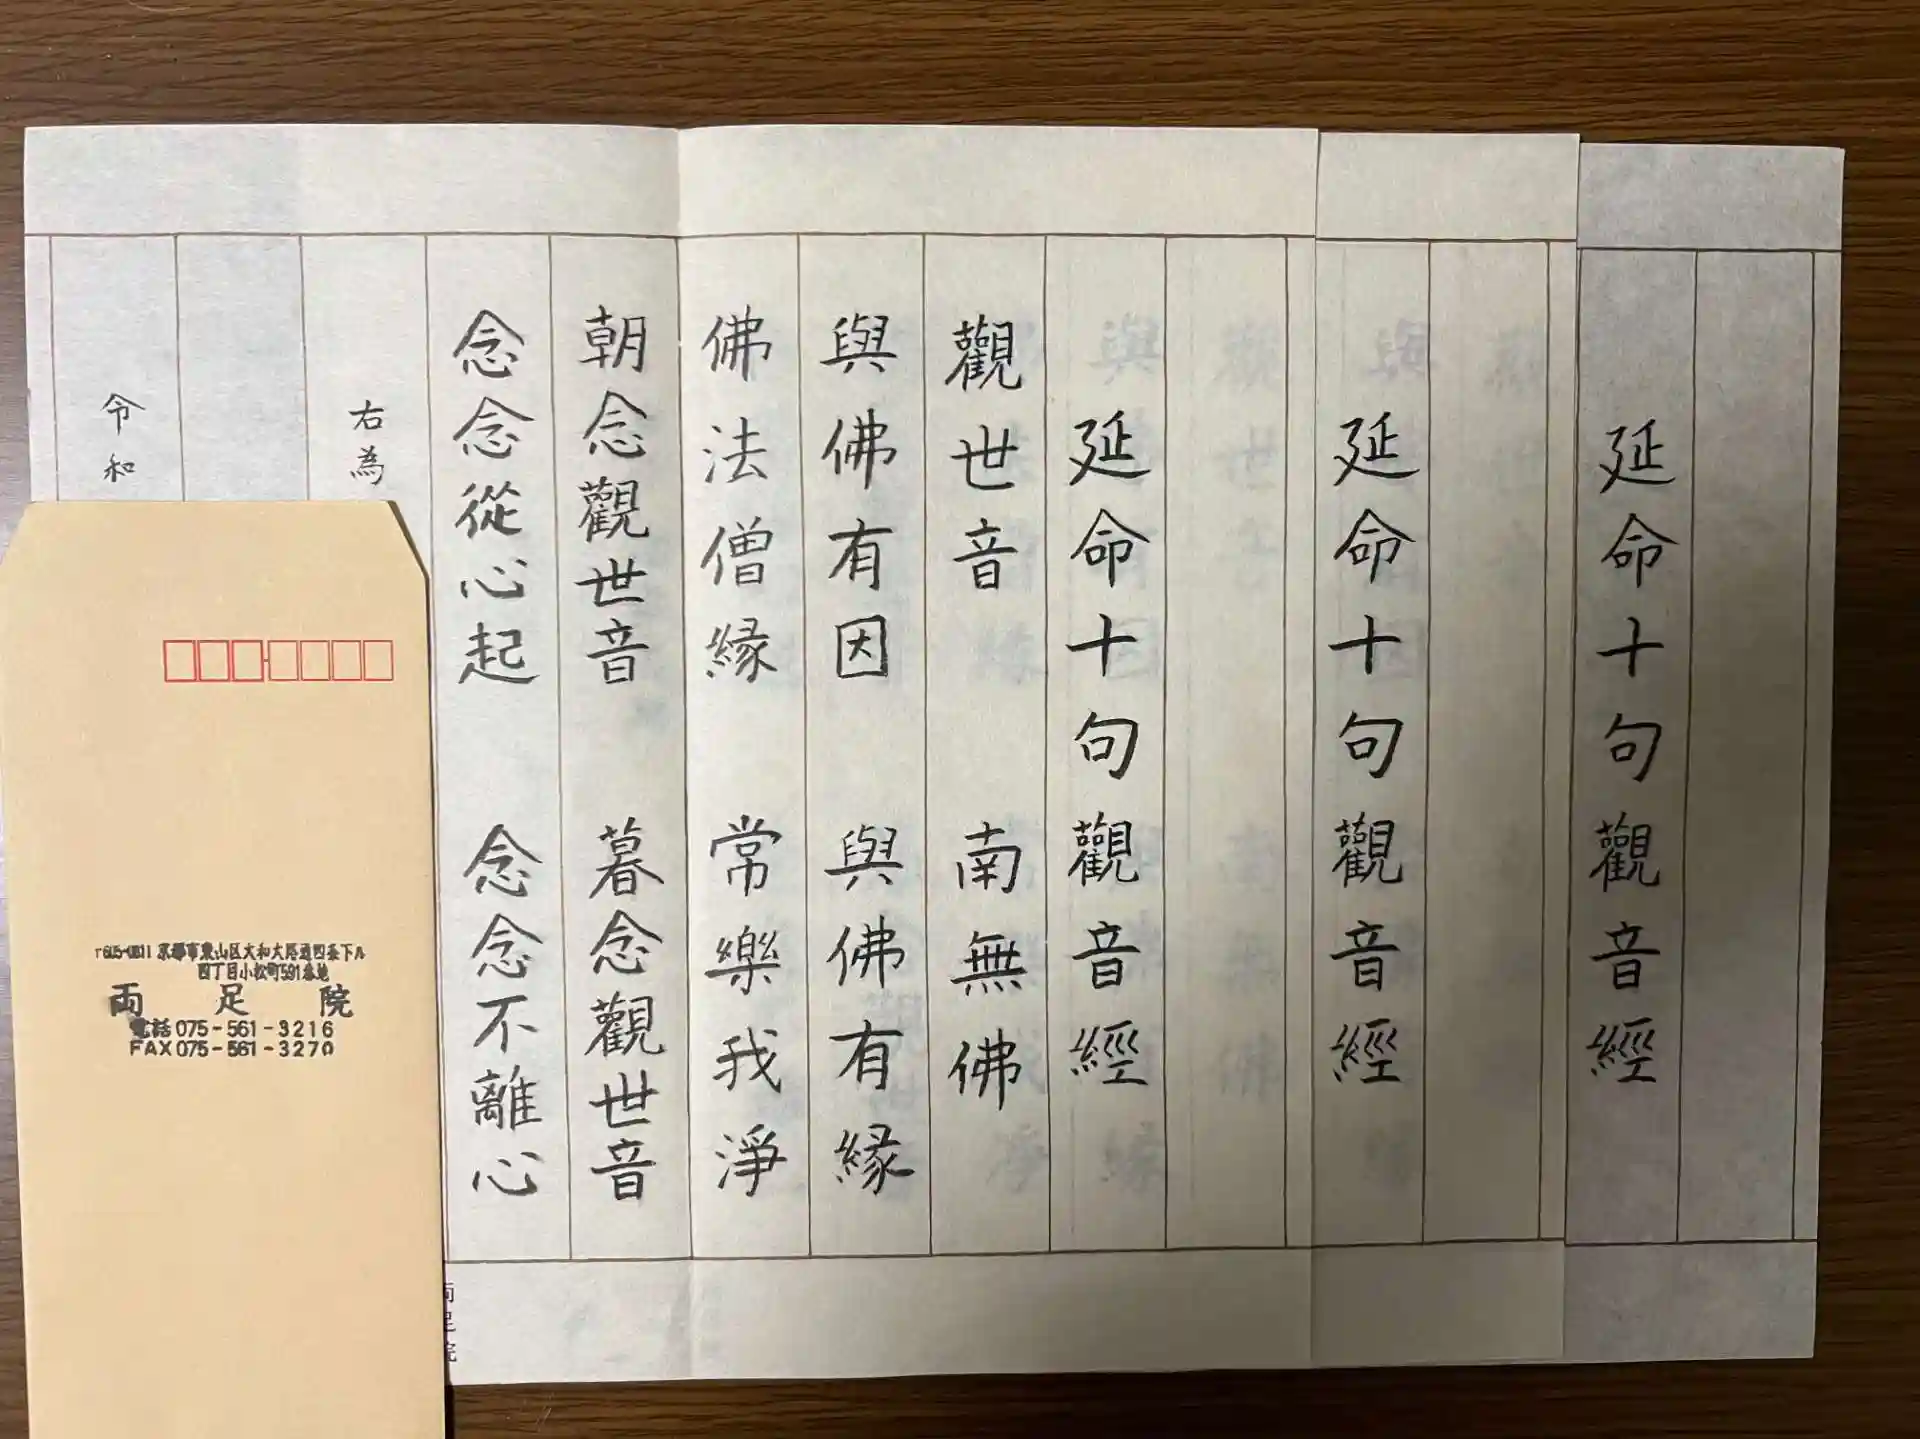 延命十句觀音經
延命十句觀音經
延命十句觀音經
觀世音 南無佛
與佛有因 與佛有縁
佛法僧縁 常樂我淨
朝念觀世音 暮念觀世音
念念從心起 念念不離心
右為
令和
〒605-0811 京都市東山区大和大路通四条下ル
四丁目小松町591番地
両足院
電話075-561-3216
FAX075-561-3270
両足院